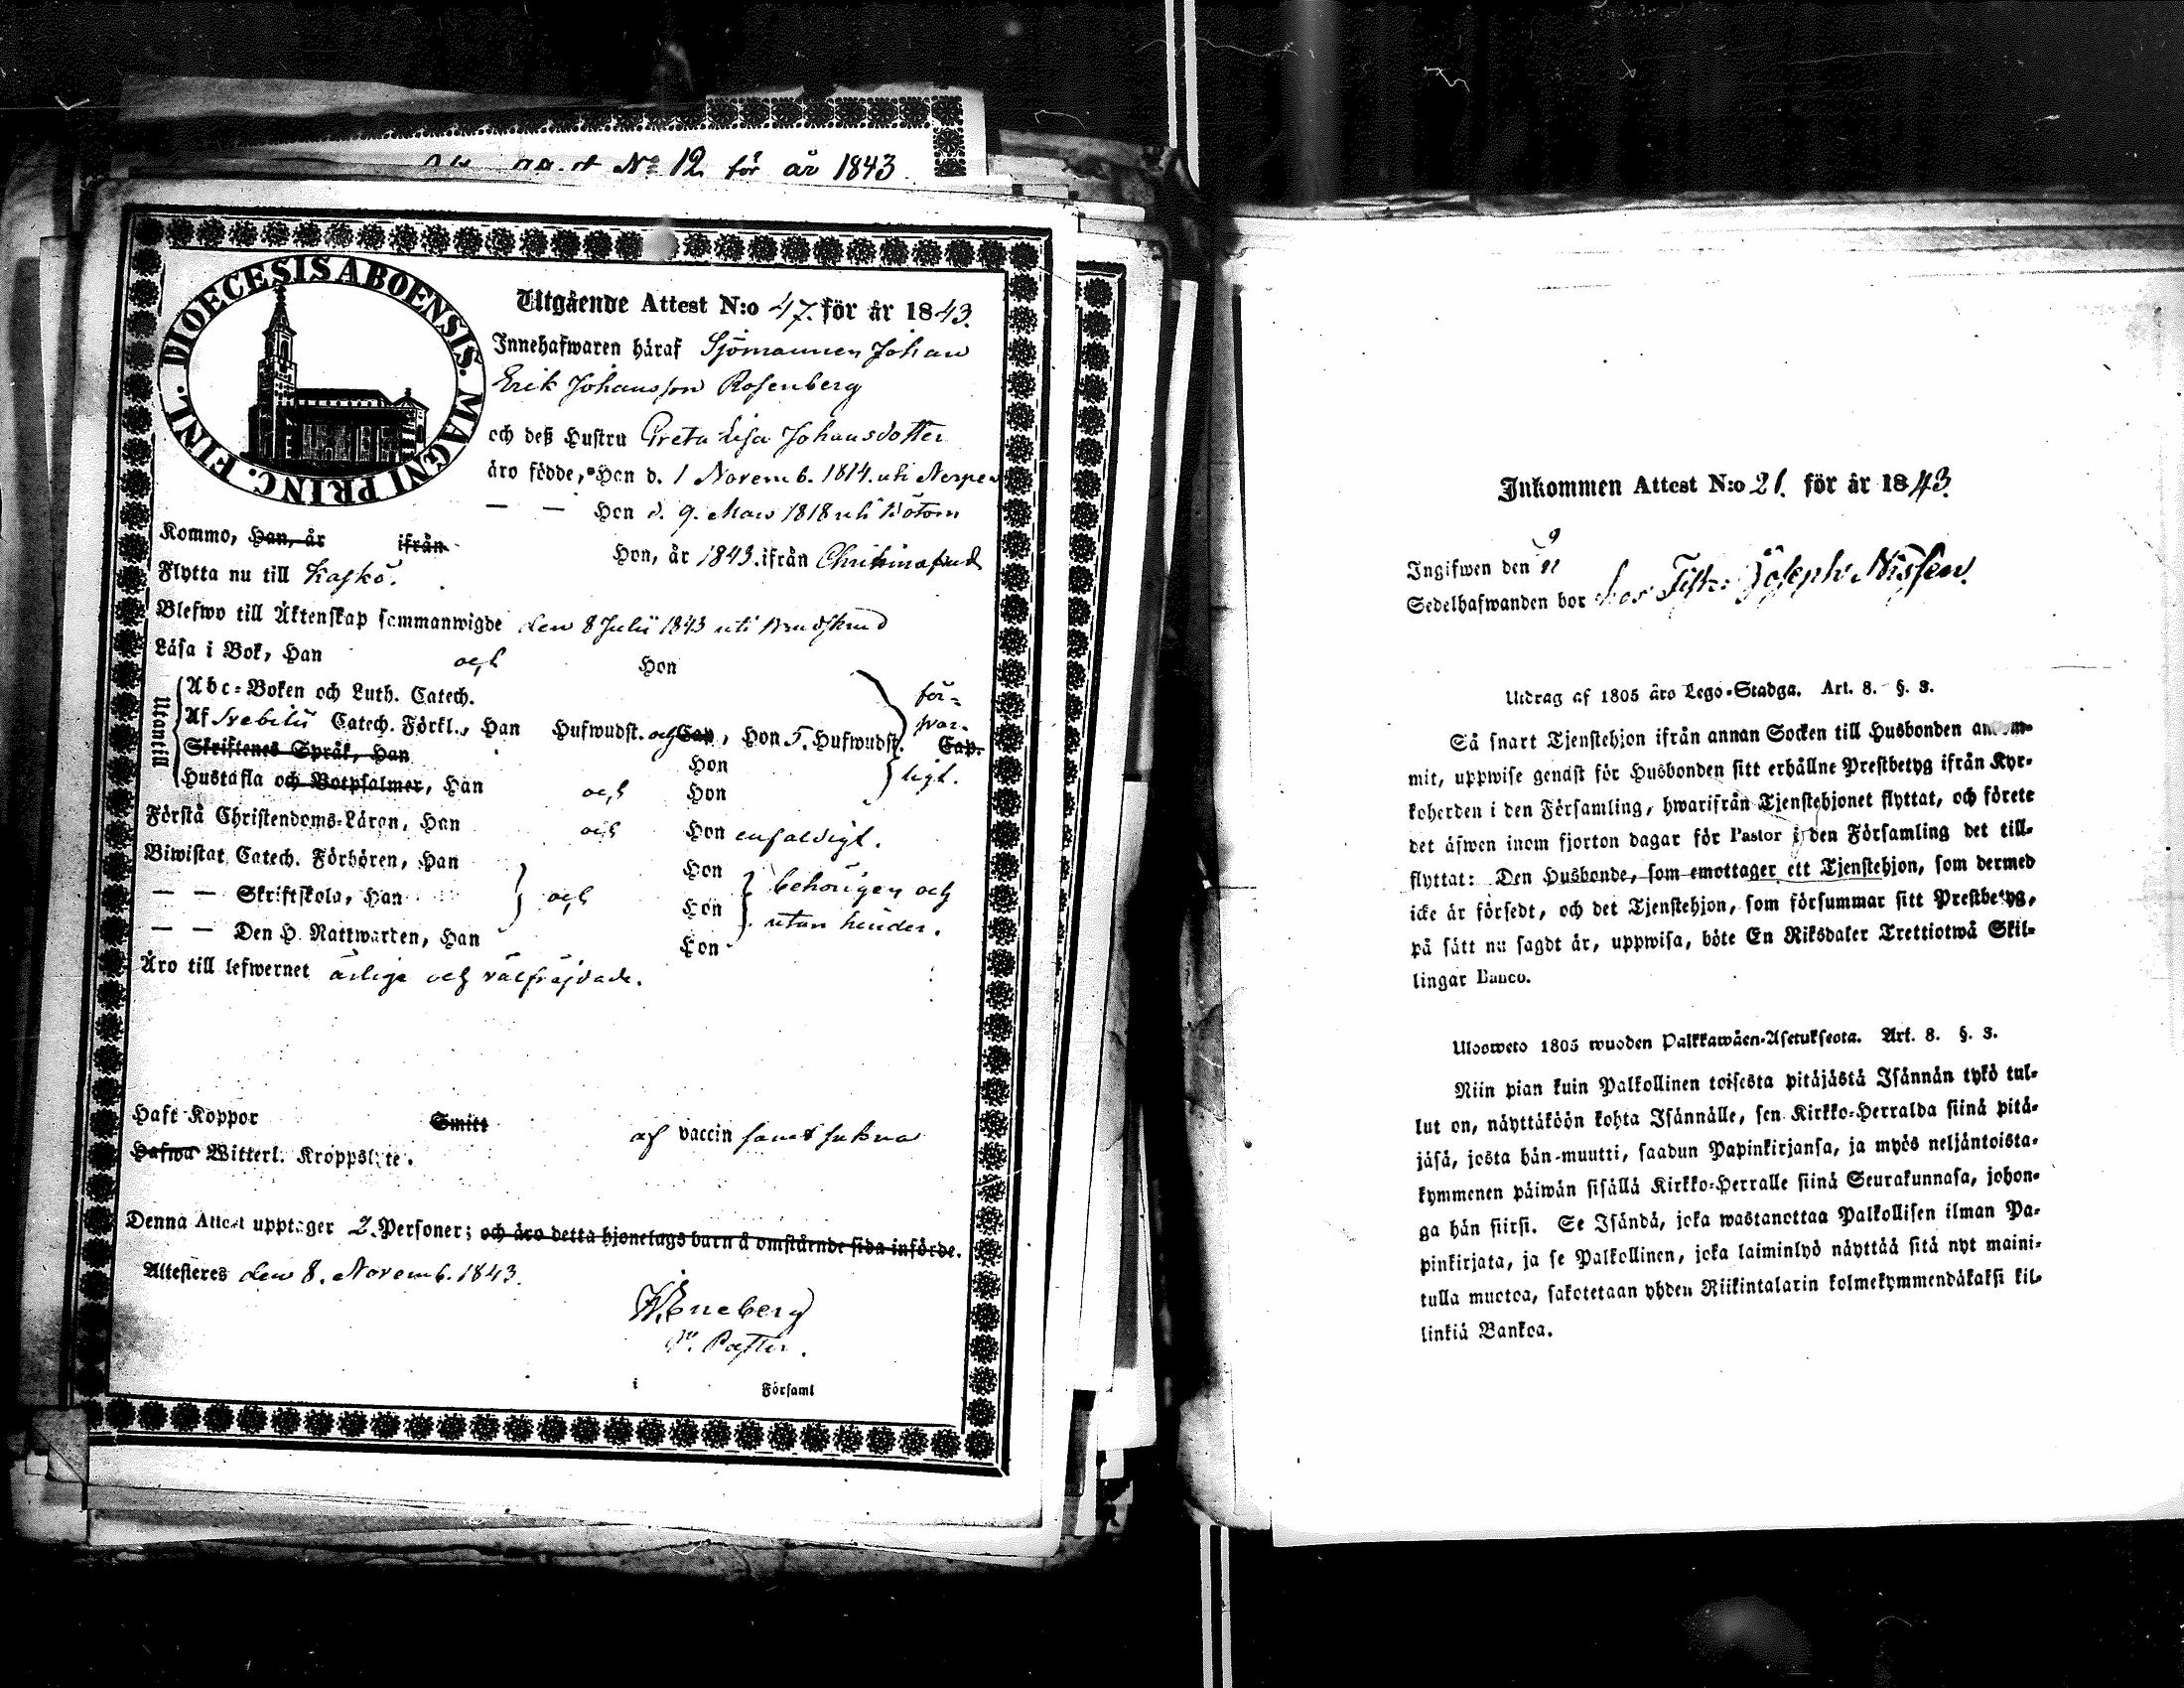 No 12 för år 1843.
DIOECESIS ABOENSIS. MAGNI PRINC. FINL.
Utgående Attest N:o 47. för år 1843.
Innehafwaren häraf Sjömannen Johan
Erik Johansson Rosenberg
och deß Hustru Greta Lisa Johansdotter
äro födde, Han d. 1 Novemb. 1814. uti Nerpes
— — Hon d. 9. Mars 1818 uti
Kommo, Han, år ifrån Hon, år 1843. ifrån Christinestad
Flytta nu till Kaskö.
Blefwo till Äktenskap sammanwigde den 8 Julii 1843 uti
Läsa i Bok, Han och Hon
Utantill
Abc-Boken och Luth. Catech.
Af Svebilii Catech. Förkl., Han Hufwudst. och Cap, Hon 5. Hufwudst. Cap.
Skriftenes Språk, Han Hon
Hustafla och Botpsalmer, Han och Hon
för-
svar-
ligt.
Förstå Christendoms-Läran, Han och Hon enfaldigt.
Biwistat Catech. Förhören, Han Hon
— — Skriftskola, Han och Hon behörigen och
— — Den H. Nattwarden, Han Hon utan hinder.
Äro till lefwernet ärliga och välfräjdade.
Haft Koppor Smitt af vaccin samt sakna
Hafwa Witterl. Kroppslyte.
Denna Attest upptager 2. Personer; och äro detta hjonelags barn å omstående sida införde.
Attesteras den 8. Novemb. 1843.
Eneberg
Pastor.
i Församl
Inkommen Attest N:o 21. för år 1843.
Ingifwen den
Sedelhafwanden bor hos Joseph Nissen.
Utdrag af 1805 års Lego-Stadga. Art. 8. §. 3.
Så snart Tjenstehjon ifrån annan Socken till Husbonden ankom-
mit, uppwise genast för Husbonden sitt erhållne Prestbetyg ifrån Kyr-
koherden i den Församling, hwarifrån Tjenstehjonet flyttat, och förete
det äfwen inom fjorton dagar för Pastor i den Församling det till-
flyttat: Den Husbonde, som emottager ett Tjenstehjon, som dermed
icke är försedt, och det Tjenstehjon, som försummar sitt Prestbetyg,
på sätt nu sagdt är, uppwisa, böte En Riksdaler Trettiotwå Skil-
lingar Banco.
Uloswеto 1805 wuoden Palkkawäen-Asetuksesta. Art. 8. §. 3.
Niin pian kuin Palkollinen toisesta pitäjästä Isännän tykö tul-
lut on, näyttäköön kohta Isännälle, sen Kirkko-Herralda siinä pitä-
jäsä, josta hän muutti, saadun Papinkirjansa, ja myös neljäntoista-
kymmenen päiwän sisällä Kirkko-Herralle siinä Seurakunnasa, johon-
ga hän siirsi. Se Isändä, joka wastanottaa Palkollisen ilman Pa-
pinkirjata, ja se Palkollinen, joka laiminlyö näyttää sitä nyt maini-
tulla muotoa, sakotetaan yhden Riikintalarin kolmekymmendäkaksi kil-
linkiä Bankoa.